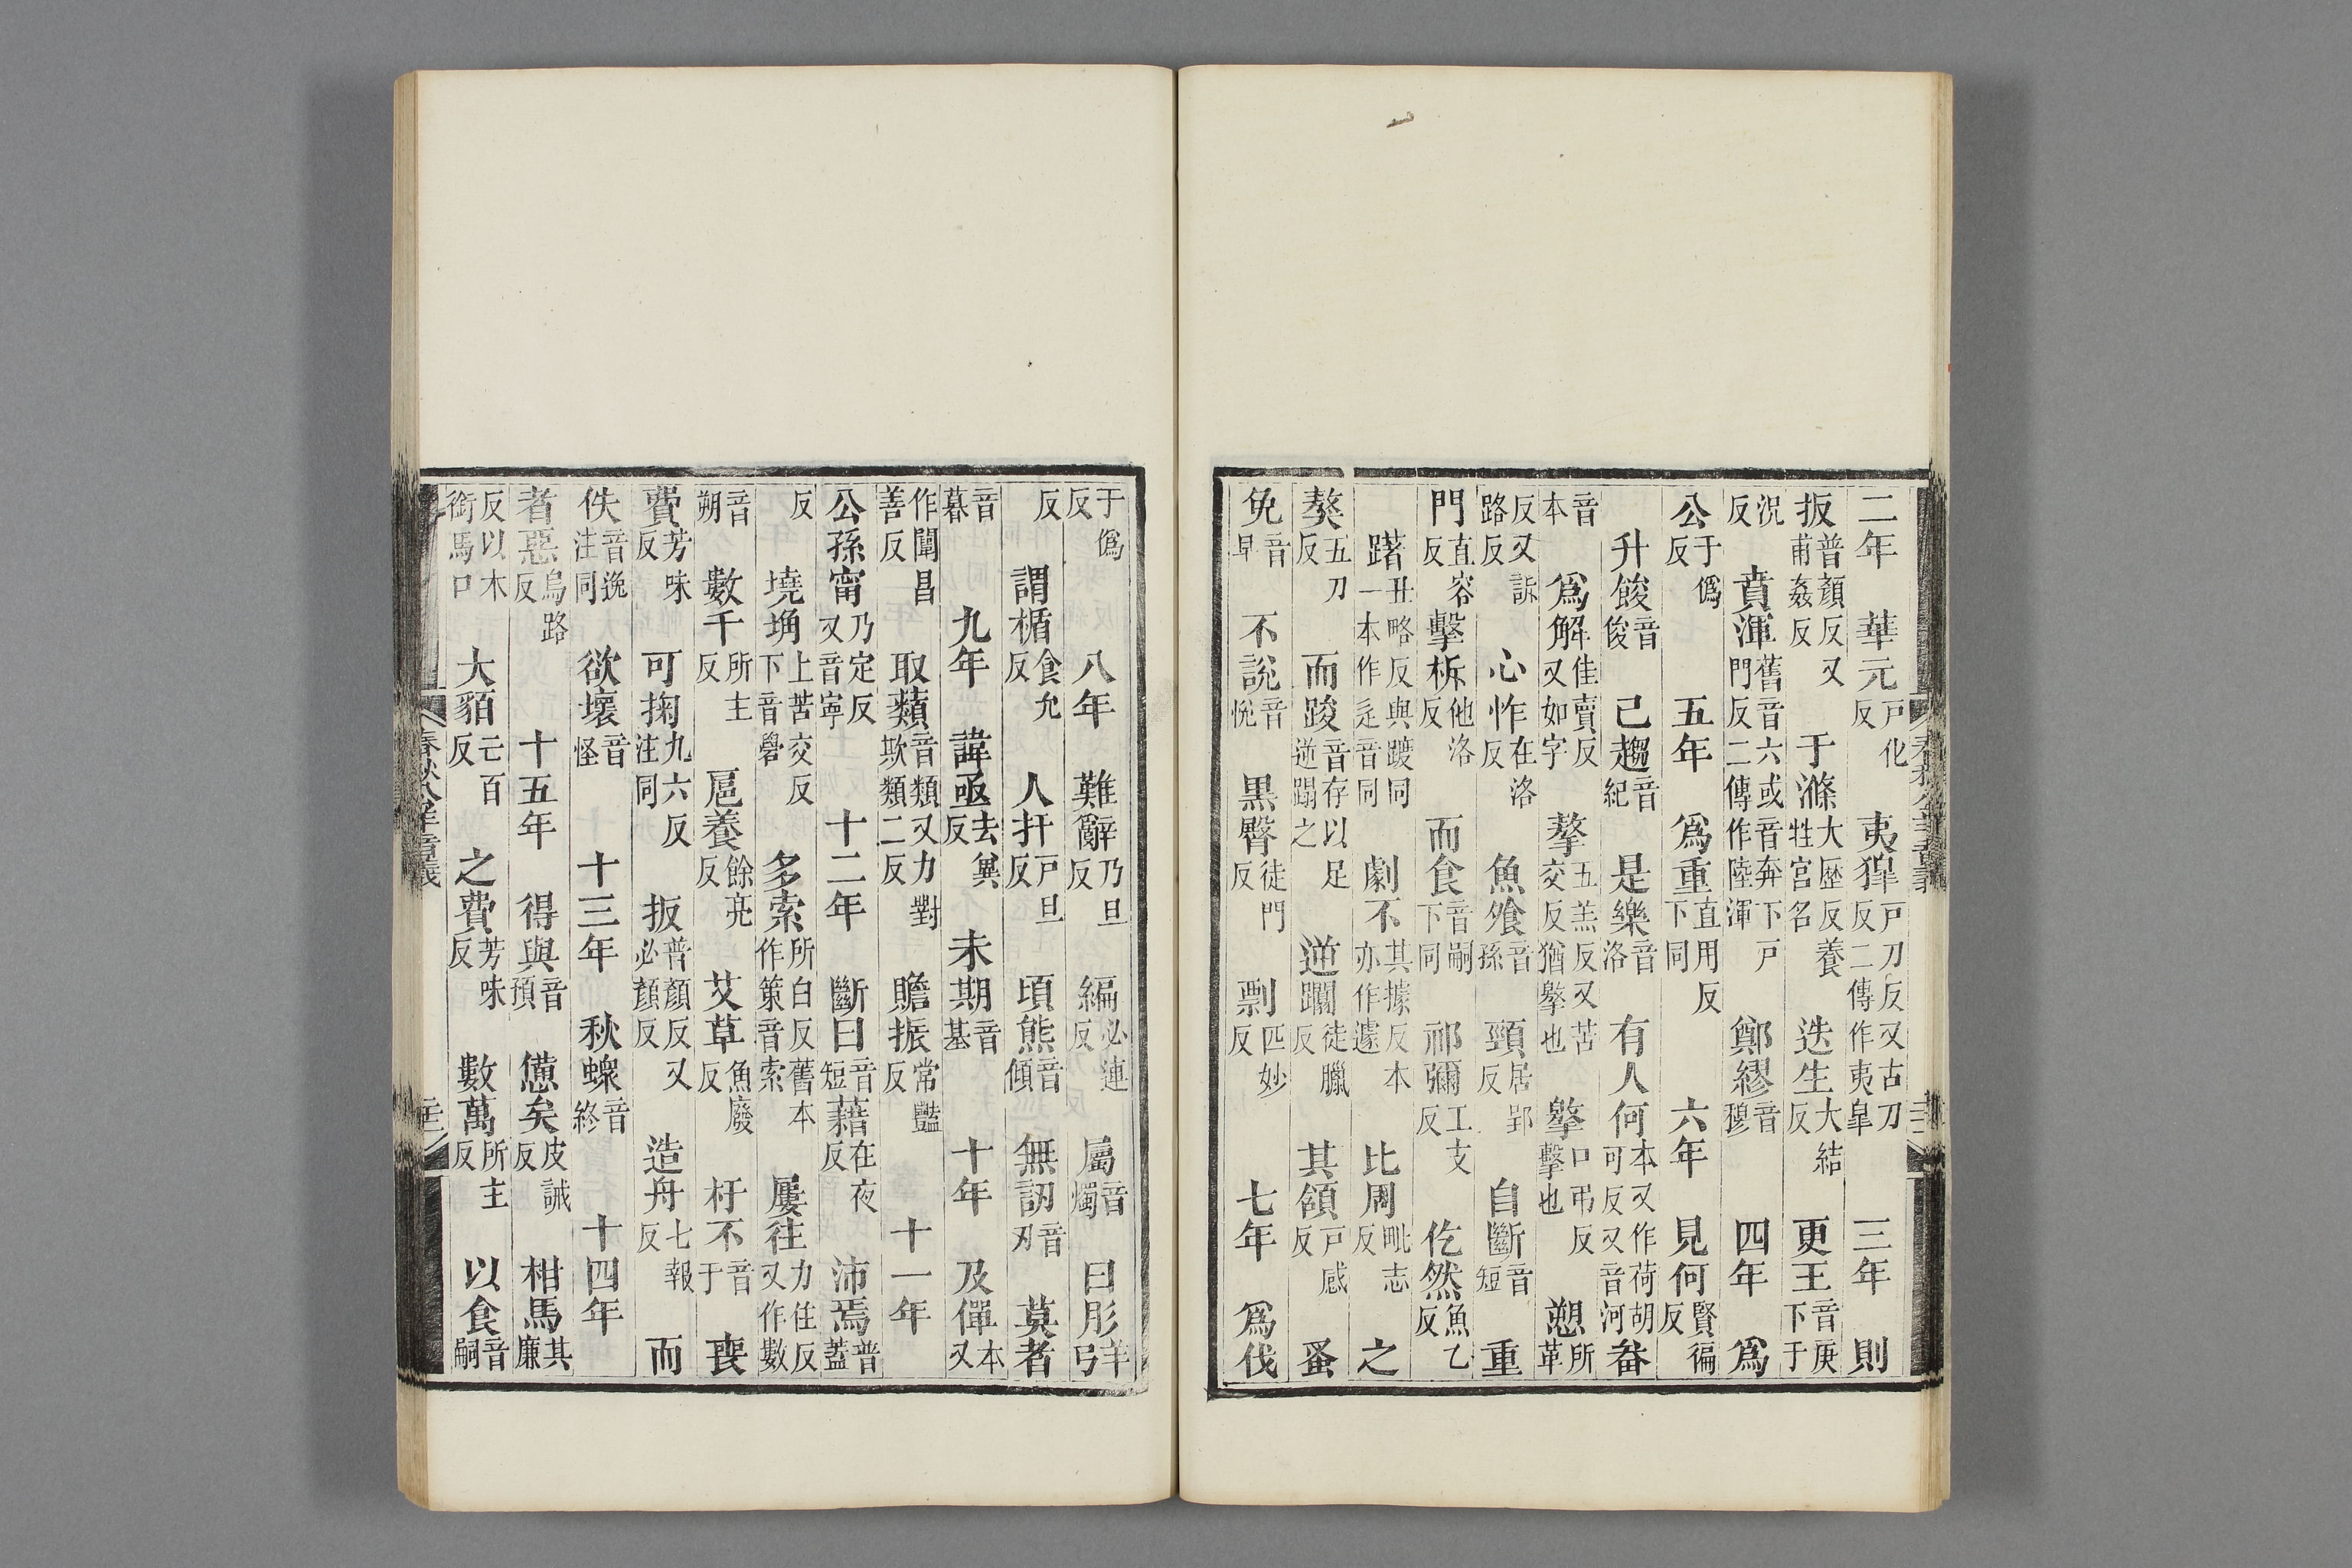 二年　華元戶化反　夷獆戶刀反又古刀反二傳作夷皐　三年　則
扳普顏反又甫姦反　于滌大歷反養牲宮名　迭生大結反　更王音庚下于
況反　賁渾舊音六或音奔下戶門反二傳作陸渾　鄭繆音穆　四年　爲
公于僞反　五年　爲重直用反下同　六年　見何賢徧反
升餕音俊　己趨音紀　是樂音洛　有人何本又作荷胡可反又音河　畚
音本　爲解佳賣反又如字　摮五羔反又苦交反猶擊也　擎口弔反擊也　愬所革
反又訴路反　心怍在洛反　魚飧音孫　頸居郢反　自斷音短　重
門直容反　擊柝他洛反　而食音嗣下同　祁彌工支反　仡然魚乙反
躇丑略反與踱同一本作辵音同　劇不其據反本亦作遽　比周毗志反　之
獒五刀反　而踆音存以足逆蹋之　逆躝徒臘反　其頷戶感反　蚤
免音早　不說音悅　黒臀徒門反　剽匹妙反　七年　爲伐
于僞反　八年　難辭乃旦反　編必連反　屬音燭　曰肜羊弓
反　謂楯食允反　人扞戶旦反　頃熊音傾　無訒音刃　莫者
音暮　九年　諱亟去兾反　未期音基　十年　及僤本又
作闡昌善反　取蘱音類又力對欺類二反　贍振常豔反　十一年
公孫甯乃定反又音寧　十二年　斷曰音短藉在夜反　沛焉普蓋
反　墝埆上苦交反下音礐　多索所白反舊本作策音索　屢往力住反又作數
音朔　數千所主反　扈養餘亮反　艾草魚廢反　杅不音于　喪
費芳味反　可掬九六反注同　扳普顏反又必顏反　造舟七報反　而
佚音逸注同　欲壞音怪　十三年　秋蝝音終　十四年
者惡烏路反　十五年　得與音預　憊矣皮誡反　柑馬其廉
反以木銜馬口　大貊亡百反　之費芳味反　數萬所主反　以食音嗣
春秋公羊音義